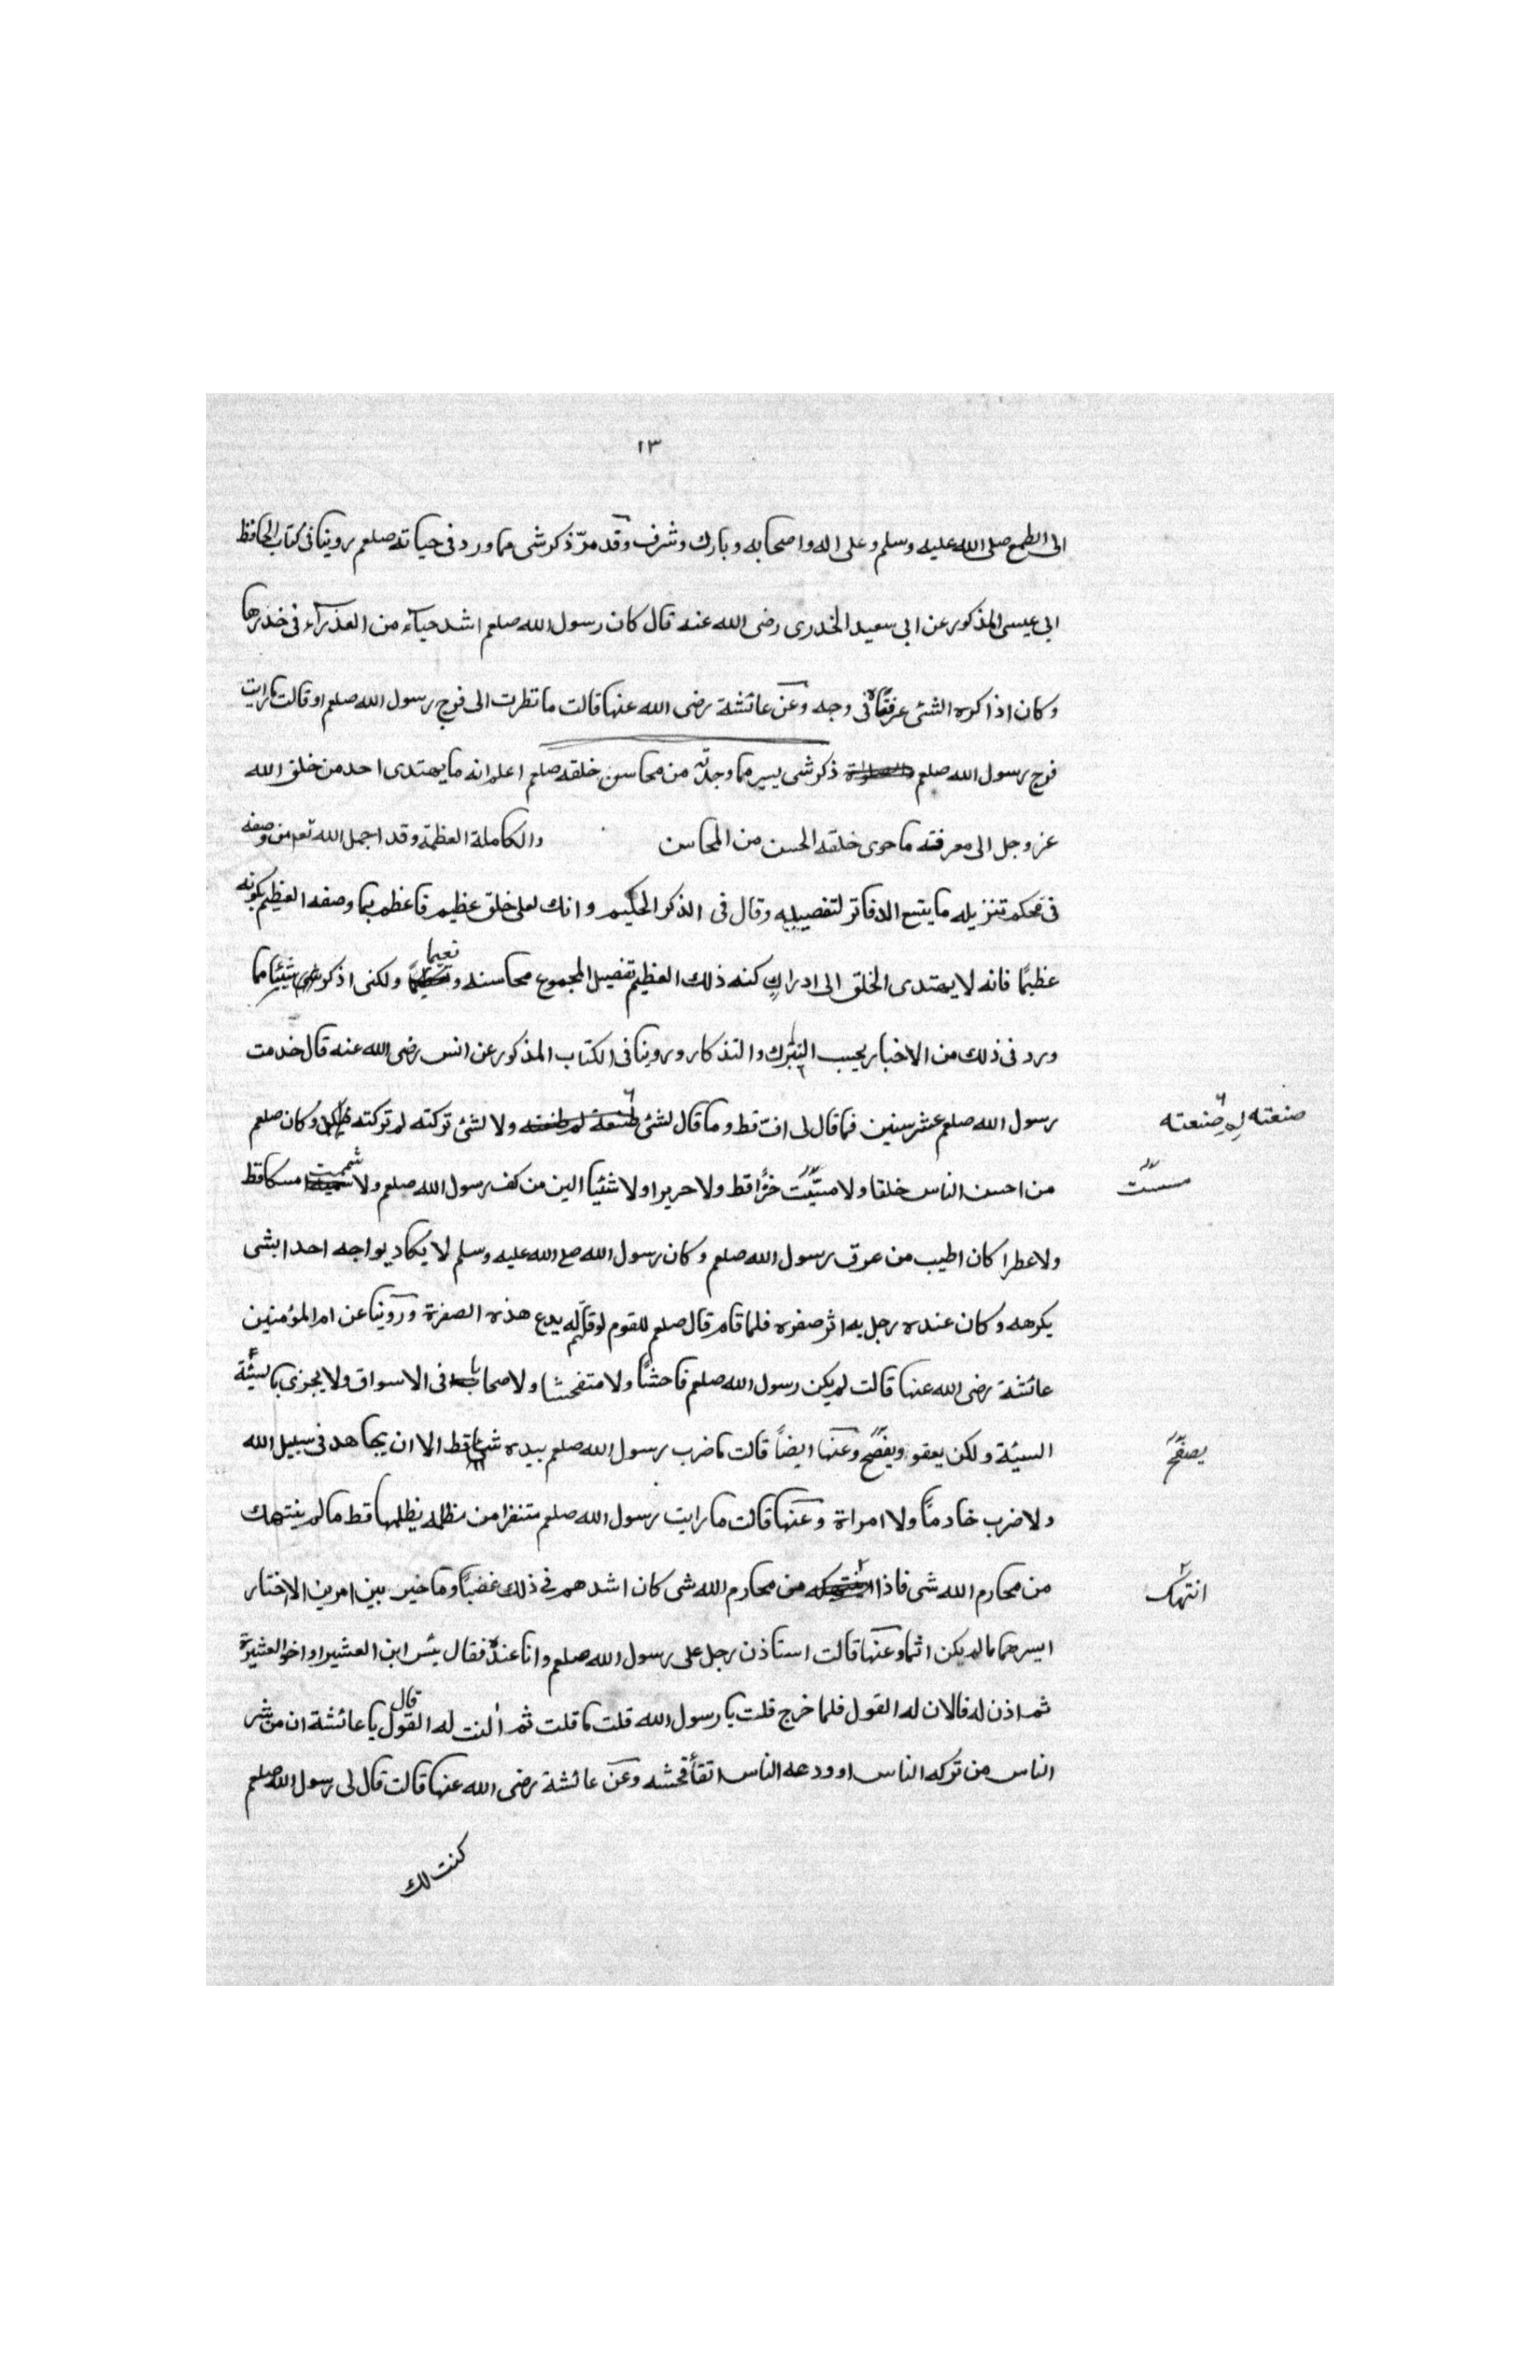 ١٣
الى الطمع صلى الله عليه وسلم وعلى اله واصحابه وبارك وشرف وقد مرّ ذكر شى مما ورد فى حياته صلعم روينا فى كتاب الحافظ
ابى عيسى المذكور عن ابى سعيد الخدرى رضى الله عنه قال كان رسول الله صلعم اشد حياء من العذراء فى خدرها
وكان اذا كره الشئ عرفناه فى وجه وعن عائشة رضى الله عنها قالت ما نظرت الى فرج رسول الله صلعم او قالت ما رايت
فرج رسول الله صلعم ذكر شى يسير مما وجدته من محاسن خلقه صلعم اعلم انه ما يهتدى احد من خلق الله
عز وجل الى معرفته ما حوى خلقه الحسن من المحاسن والكاملة العظمة وقد اجمل الله تعم من وصفه
فى محكم تنزيله ما يتبع الدفاتر لتفصيله وقال فى الذكر الحكيم وانك لعلى خلق عظيم فاعظم بما وصفه العظيم بكونه
عظيمًا فانه لا يهتدى الخلق الى ادراك كنه ذلك العظيم تفصيل المجموع محاسنه و نعيما ولكنى اذكر شيئا مما
ورد فى ذلك من الاخبار بحسب التبرك والتذكار وروينا فى الكتاب المذكور عن انس رضى الله عنه قال خدمت
رسول الله صلعم عشر سنين فما قال لى افّ قط وما قال لشئ ولا لشئ تركته لم تركته وكان صلعم
صنعته لم صنعته
من احسن الناس خلقا ولا مسّيت خزًا قط ولا حريرا ولا شئيا الين من كف رسول الله صلعم ولا شممت مسكا قط
مسست
ولا عطرا كان اطيب من عرق رسول الله صلعم وكان رسول الله صلع الله عليه وسلم لا يكاد يواجه احدا بشى
يكرهه وكان عنده رجل به اثر صفره فلما قام قال صلعم للقوم لو قلتم له يدع هذه الصفرة وروينا عن ام المؤمنين
عائشة رضى الله عنها قالت لم يكن رسول الله صلعم فاحشًا ولا متفحشا ولا صخابا فى الاسواق ولا يجزى بالسيئة
السيئة ولكن يعفو ويفصح وعنها ايضاً قالت ما ضرب رسول الله صلعم بيده شيئا قط الا ان يجاهد فى سبيل الله
يصفح
ولا ضرب خادماً ولا امراة وعنها قالت ما رايت رسول الله صلعم متنفرا من مظلمه يظلمها قط ما لم ينتهك
من محارم الله شى فاذا من محارم الله شى كان اشدهم فى ذلك غضباً وما خير بين امرين الا اختار
انتهك
ايسرهما ما لم يكن اثما وعنها قالت استاذن رجل على رسول الله صلعم وانا عنده فقال بئس ابن العشير او اخو العشيرة
ثم اذن له فالان له القول فلما خرج قلت يا رسول الله قلت ما قلت ثم النت له القول قال يا عائشة ان من شر
الناس من تركه الناس او ودعه الناس اتقأ فحشه وعن عائشة رضى الله عنها قالت قال لى رسول الله صلعم
كنت لك